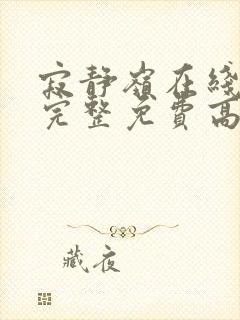 寂静嶺在綫
完整免費高
藏夜